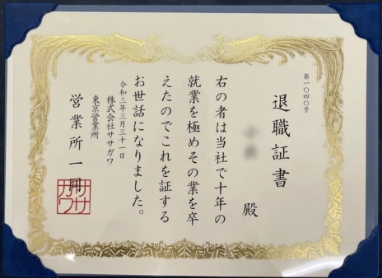 第一〇四〇号
退職証書
殿
右の者は当社で十年の
就業を極めその業を卒
えたのでこれを証する
お世話になりました。
令和三年三月三十一日
株式会社ササガワ
東京営業所
営業所一同
ササガワ